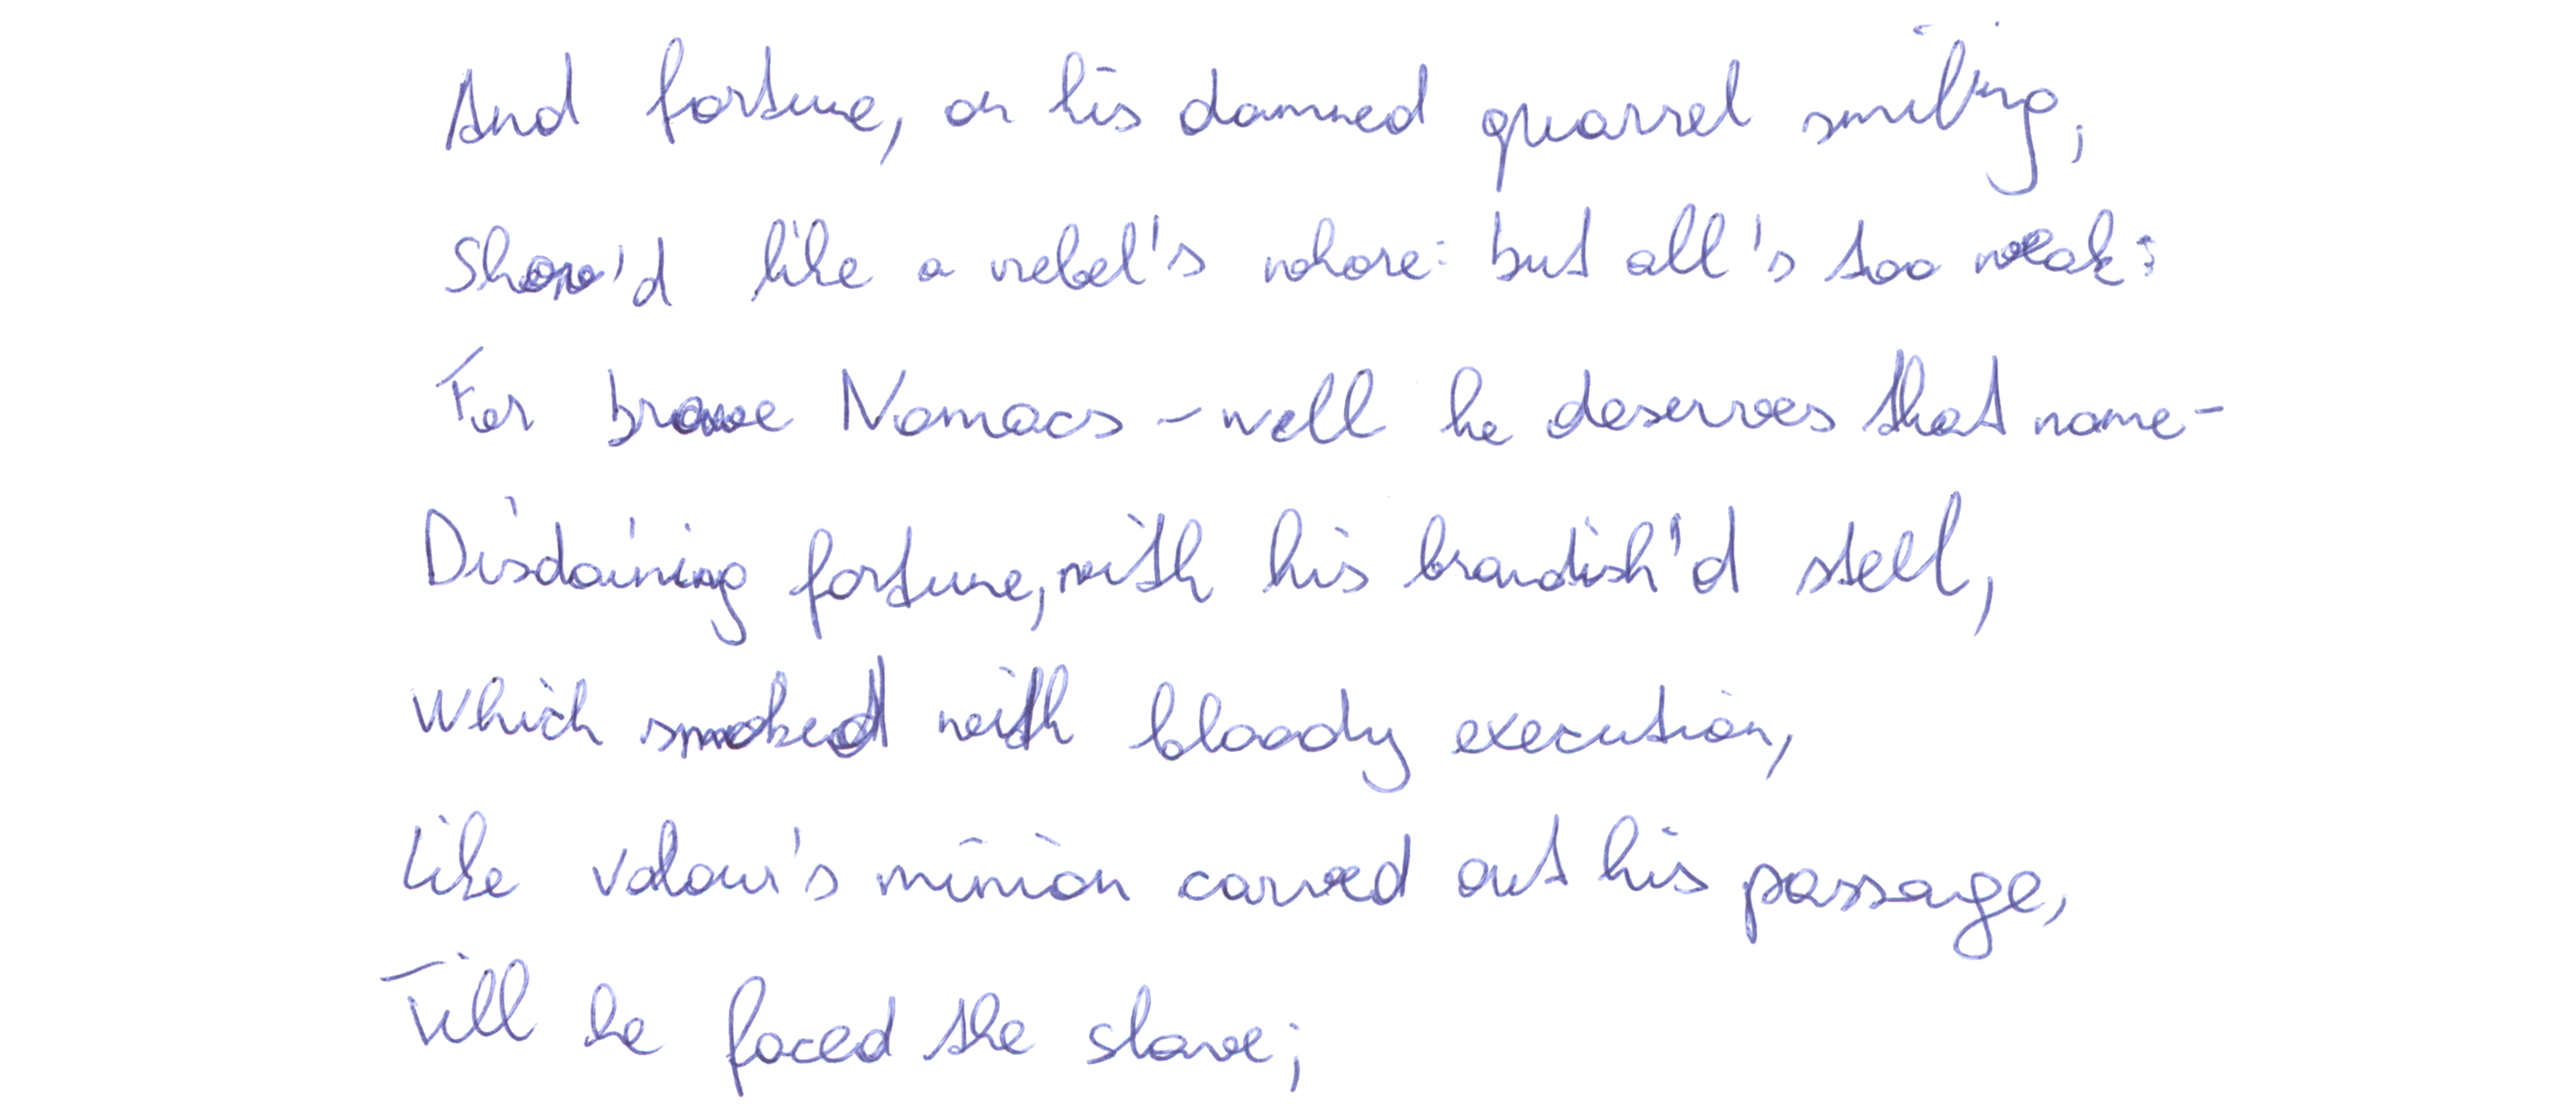 And fortune, on his damned quarrel smiling,
Show'd like a rebel's whore: but all's too weak:
For brave Nomacs - well he deserves that name -
Disdaining fortune, with his brandish'd stell,
Which smoked with bloody execution,
Like valour's minion carved out his passage,
Till he faced the slave;